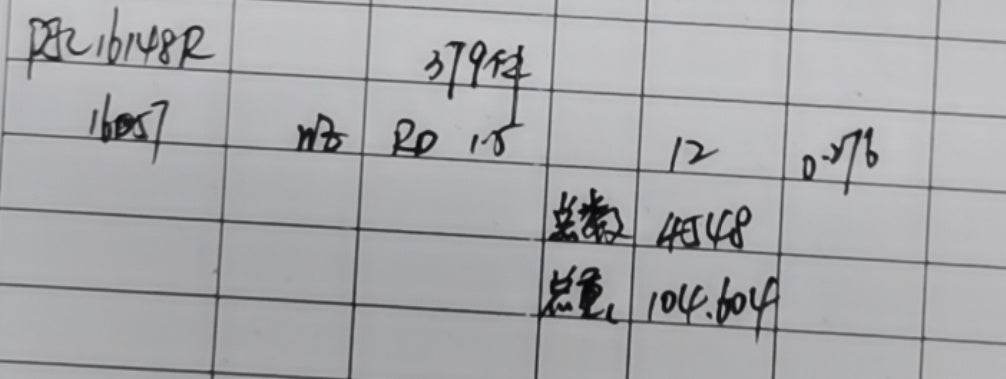 16148R 379件
16057 RD 1.5 12 0.276
总数 4548
总重 104.604